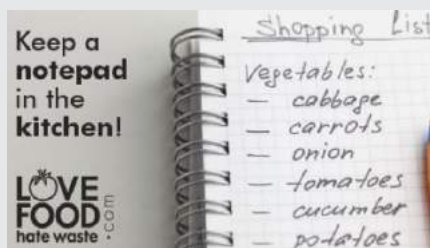 Keep a
notepad
in the
kitchen!
LOVE
FOOD
hate waste
.com
Shopping List
Vegetables:
— cabbage
— carrots
— onion
— tomatoes
— cucumber
— potatoes